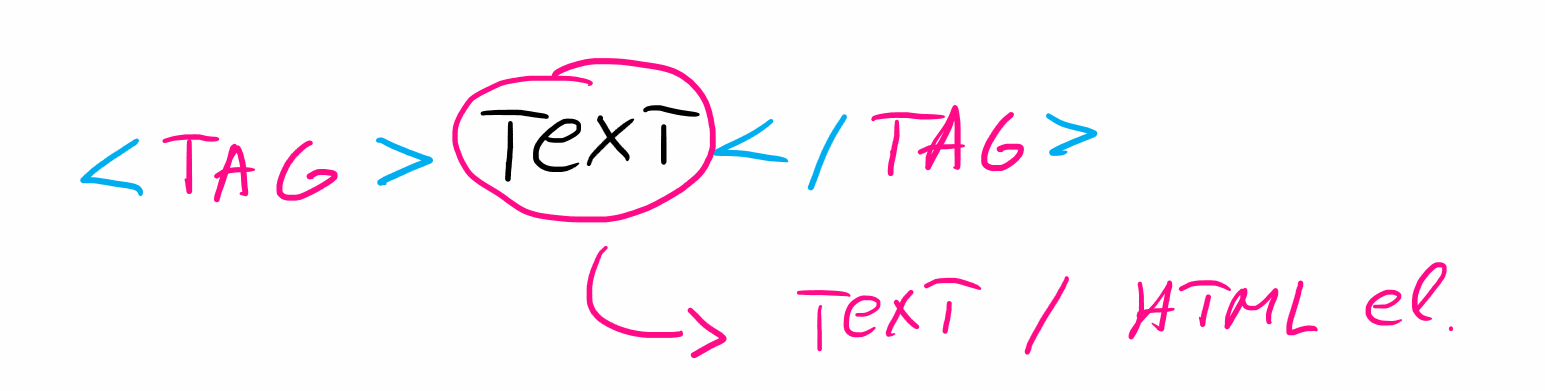 <TAG>TexT</TAG>
TexT / HTML el.